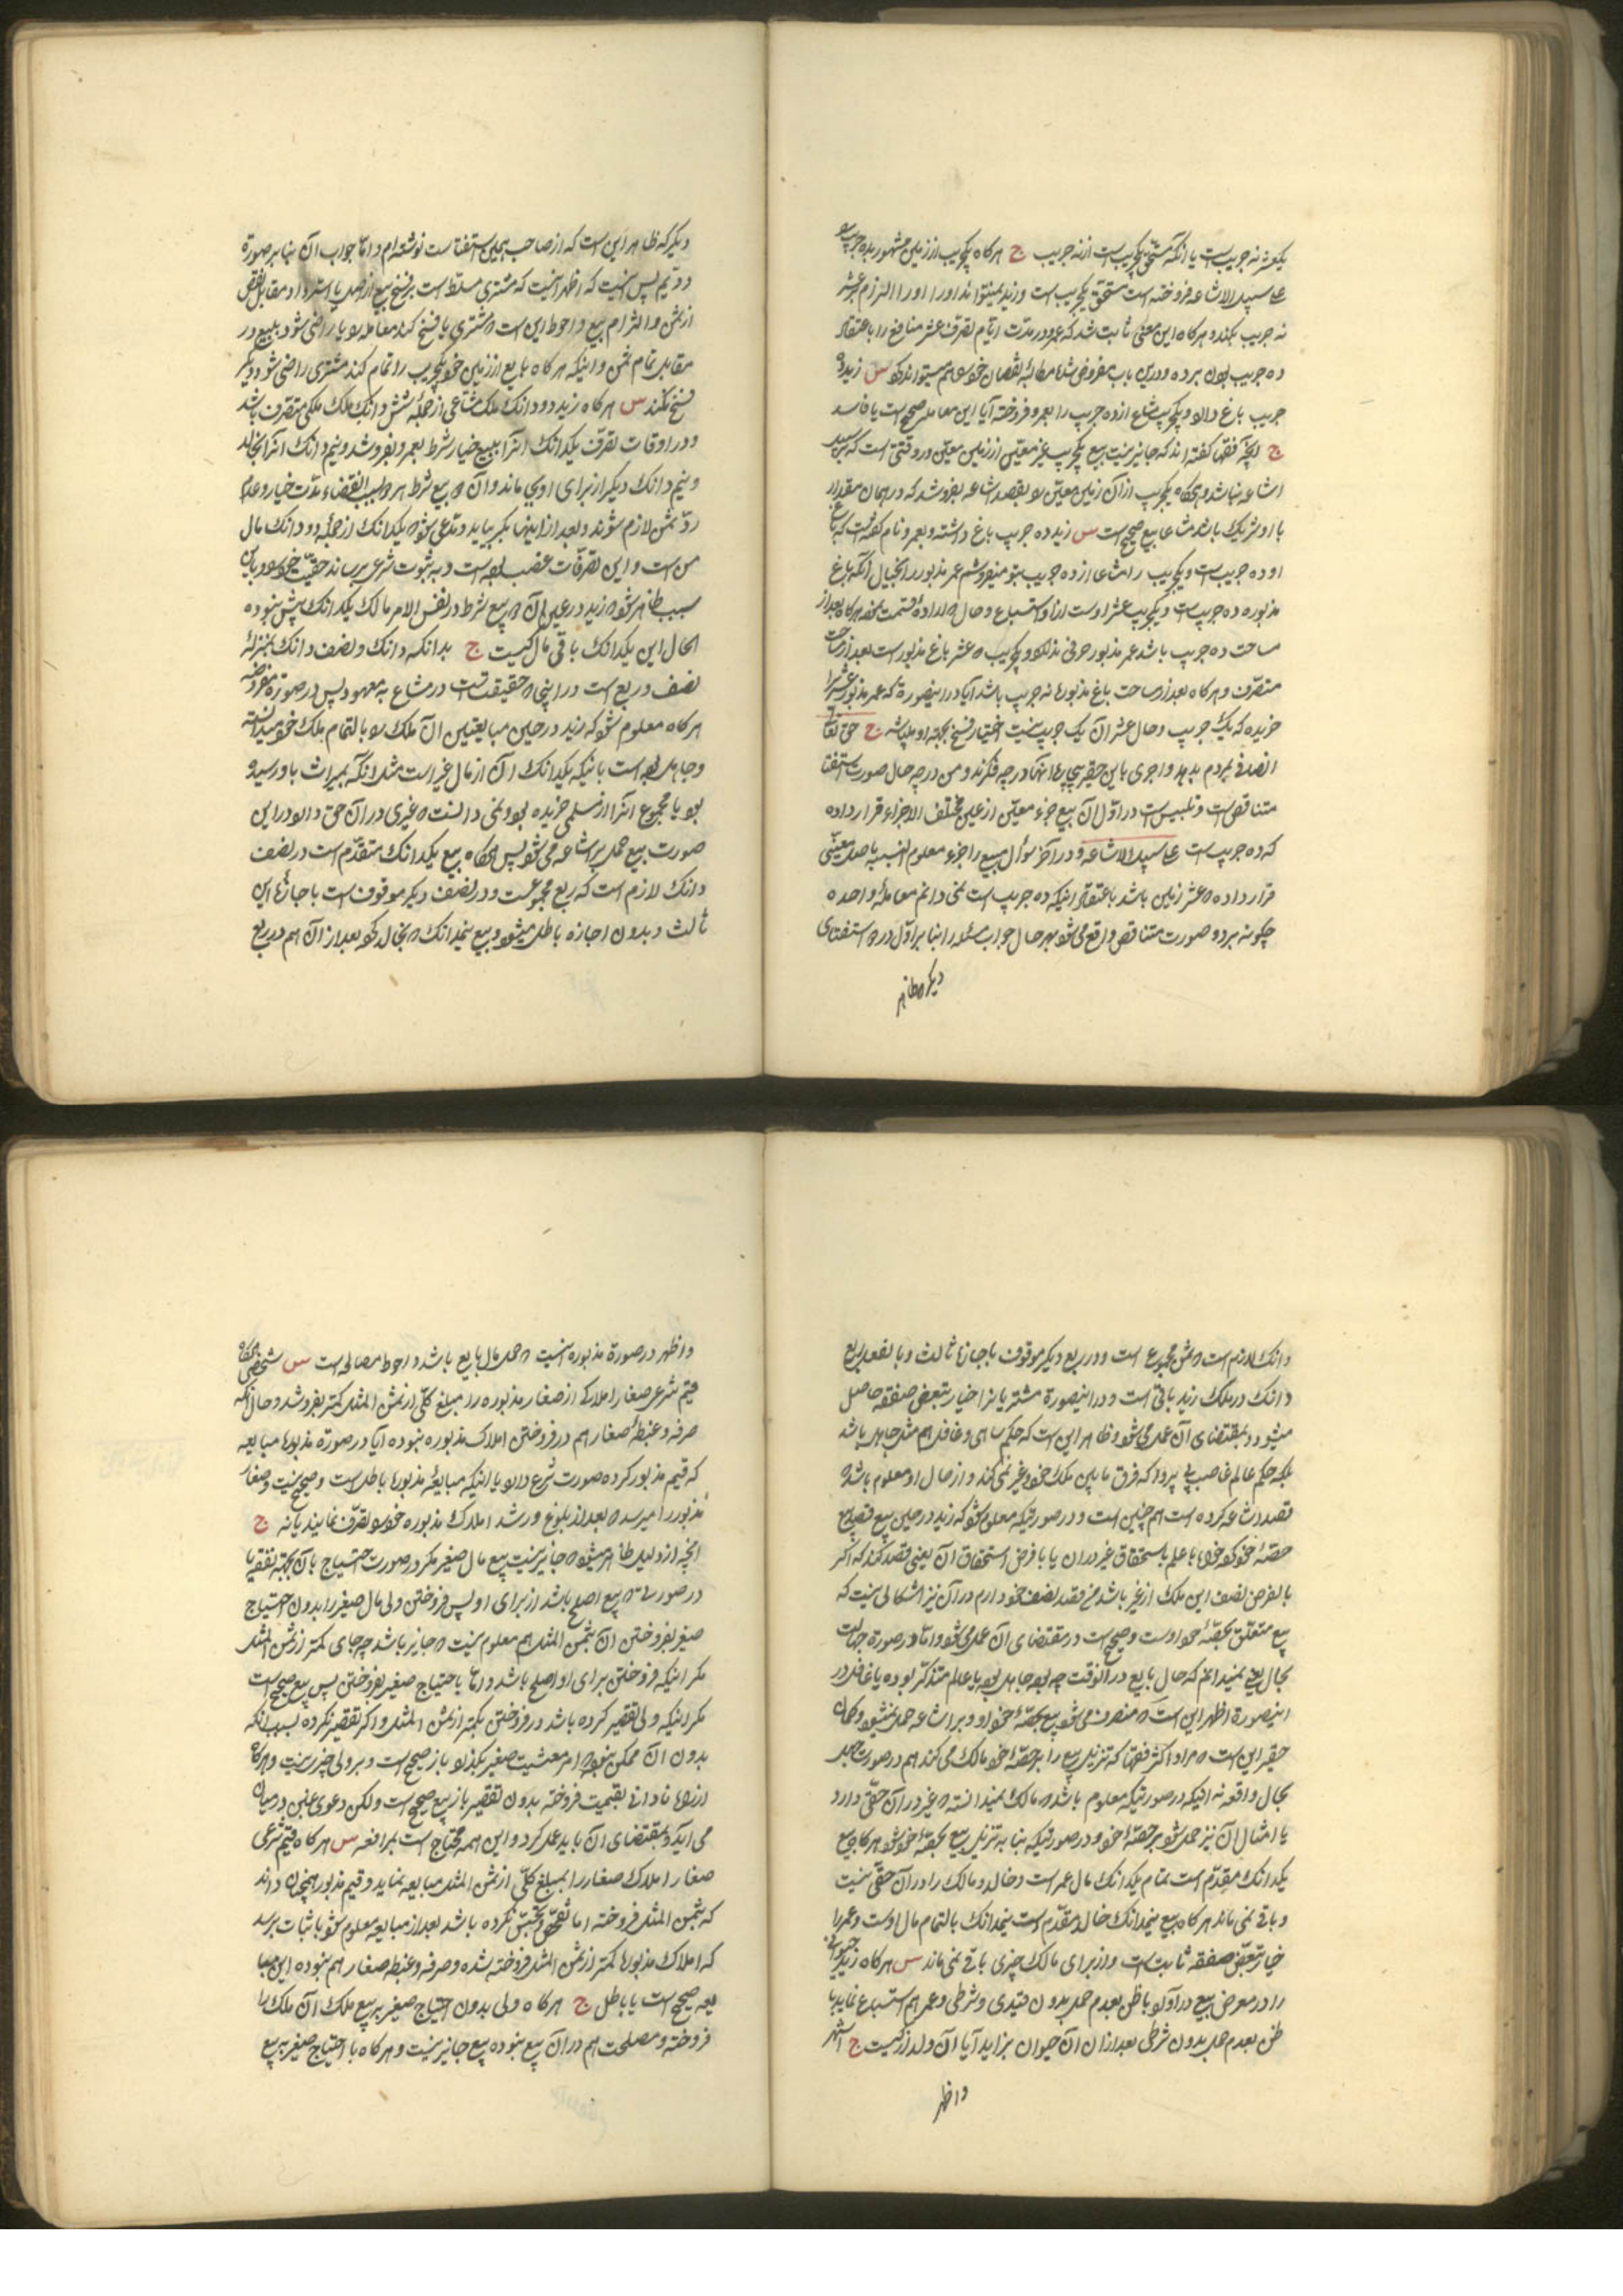 یکعشر نه جریبست یا آنکه مستحق یکجریب است از نه جریب ج هرگاه یکجریب از زمین مشهور به ده جریب را
علی سبیل الاشاعه فروخته است مستحق یکجریب است و زید نمیتواند او را الزام بر عشر
نه جریب بکند و هرگاه این معنی ثابت شد که عمرو در مدت ایام تصرف عشر منافع را باعتقاد
ده جریب بودن برده و در این باب مغرور شده مطالبه نقصان خود هم میتواند کرد س زید ده
جریب باغ دارد و یکجریب مشاع از ده جریب را بعمرو فروخته آیا این معامله صحیح است یا فاسد
ج آنچه فقها گفته اند که جایز نیست بیع یکجریب غیر معین از زمین معین در وقتی است که بر سبیل
اشاعه نباشد و هرگاه یکجریب از آن زمین معین را بقصد اشاعه بفروشد که در همان مقدار
با او شریک باشد مشاعا بیع صحیح است س زید ده جریب باغ داشته و بعمرو نام گفته است که باغ
او ده جریب است و یکجریب را مشاعا از ده جریب بتو میفروشم عمر مذبور در بخیال آنکه باغ
مذبوره ده جریب است و یکجریب عشر اوست از او استبیاع و حال که اراده قسمت نموده هرگاه بعد از
مساحت ده جریب باشد عمر مذبور حرفی ندارد و یکجریب که عشر باغ مذبور است بعد از مساحت
متصرف و هرگاه بعد از مساحت باغ مذبوره نه جریب باشد آیا در اینصورة که عمر مذبور عشر را
خریده که یک جریب و حال عشر آن یک جریب نیست اختیار فسخ بجهة او میباشد ج حق تعالی
انصاف بمردم بدهد و اجری باین حقیر بیچاره اینها در چه فکرند و من در چه حال صورت استفتا
متناقض است و تلبیس است در اول آن بیع جزء معین از عین مختلف الاجزاء قرار داده
که ده جریب است علی سبیل الاشاعه و در آخر سؤال مبیع را جزء معلوم النسبه باصل معینی
قرار داده که عشر زمین باشد باعتقاد اینکه ده جریب است نمی دانم معامله واحده
چگونه بر دو صورت متناقض واقع می شود بهر حال جواب مسئله را بنا بر اول در استفتای
دیگر که ظاهر
دیگر که ظاهر این است که از صاحب همین استفتا است نوشته ام و اما جواب آن بنا بر صورة
دویم پس نیست که اظهر اینست که مشتری مسلط است بر فسخ بیع از اصل یا استرداد مقابل نقص
از ثمن و التزام بیع و احوط این است که مشتری یا فسخ کند معامله را یا راضی شود ببیع در
مقابل تمام ثمن و اینکه هرگاه بایع از زمین خود یکجریب را تمام کند مشتری راضی شود و دیگر
فسخ نکند س هرگاه زید دو دانک ملک مشاعی از جمله شش دانک ملک ملکی متصرف باشد
و در اوقات تصرف یکدانک آنرا ببیع خیار شرط بعمرو بفروشد و نیم دانک آنرا بخالد
و نیم دانک دیگر از برای او می ماند و آن بیع شرط هم بسبب انقضاء مدت خیار و عدم
رد ثمن لازم شوند و بعد از اینها بکر بیاید و مدعی شود که یکدانک از جمله دو دانک مال
من است و این تصرفات غصب بوده است و به ثبوت شرعی برساند حقیت خود را و باین
سبب ظاهر شود که زید در حین آن بیع شرط در نفس الامر مالک یکدانک بیش نبوده
الحال این یکدانک باقی مال کیست ج بدانکه دانک و نصف دانک بمنزله
نصف و ربع است در اینکه حقیقت است در مشاع به معهود پس در صورة مفروضه
هرگاه معلوم شود که زید در حین مبایعتین آن ملک را بالتمام ملک خود میدانسته
و جاهل بوده است باینکه یکدانک آن از مال غیر است مثل آنکه بمیراث باو رسیده
بود یا مجموع آنرا از مسلمی خریده بود و نمی دانست که غیری در آن حق دارد در این
صورت بیع حمل بر اشاعه می شود پس هرگاه بیع یکدانک متقدم است در نصف
دانک لازم است که ربع مجموعست و در نصف دیگر موقوف است باجازه این
ثالث و بدون اجازه باطل میشود و بیع نیمدانک که بخالد کرده بعد از آن هم در ربع
دانک لازم است که ثمن مجموع است و در ربع دیگر موقوف باجازه ثالث و بالفعل ربع
دانک در ملک زید باقی است و در اینصورة مشتریانرا خیار تبعض صفقه حاصل
میشود و بمقتضای آن عمل می شود و ظاهر این است که حکم ساهی و غافل هم مثل جاهل باشد
بلکه حکم عالم غاصب بی پروا که فرق مابین ملک خود و غیر نمی کند و از حال او معلوم باشد که
قصد اشاعه کرده است هم چنین است و در صورتیکه معلوم شود که زید در حین بیع قصد بیع
حصه خود کرده خواه با علم باستحقاق غیر در آن یا با فرض استحقاق آن یعنی قصد کند که اگر
بالفرض نصف این ملک از غیر باشد من قصد نصف خود دارم در آن نیز اشکالی نیست که
بیع متعلق بحصه خود اوست و صحیح است و بمقتضای آن عمل می شود و اما در صورة جهالت
بحال یعنی نمیدانیم که حال بایع در آنوقت چه بوده جاهل بوده یا عالم متذکر بوده یا غافل در
اینصورة اظهر این است که منصرف می شود بیع بحصه خود او و بر اشاعه حمل نمیشود و گمان
حقیر این است که مراد اکثر فقها که تنزیل بیع را بر حصه خود مالک می کنند هم در صورت جهل
بحال واقعه نه اینکه در صورتیکه معلوم باشد که مالک نمیدانسته که غیر در آن حقی دارد
یا امثال آن نیز حمل شود بر حصه خود و در صورتیکه بنا به تنزیل بیع بحصه خود شود هرگاه بیع
یکدانک مقدم است تمام یکدانک مال عمر است و خالد و مالک را در آن حقی نیست
و باقی نمی ماند هرگاه بیع نیمدانک خالد مقدم است نیمدانک بالتمام مال اوست و عمر را
خیار تبعض صفقه ثابت است و از برای مالک چیزی باقی نمی ماند س هرگاه زید حیوانی
را در معرض بیع درآورد با ظن بعدم حمل بدون قیدی و شرطی و عمر هم استبیاع نماید با
ظن بعدم حمل بدون شرطی بعد از آن آن حیوان بزاید آیا آن ولد از کیست ج اشهر
و اظهر
و اظهر در صورة مذبوره اینست که حمل مال بایع باشد و احوط مصالحه است س شخصی هرگاه
قیم شرعی صغار املاکی از صغار مذبوره را بمبلغ کلی از ثمن المثل کمتر بفروشد و حال آنکه
صرفه و غبطه صغار هم در فروختن املاک مذبوره نبوده آیا در صورة مذبوره مبایعه
که قیم مذبور کرده صورت شرعی دارد یا اینکه مبایعه مذبوره باطل است و صحیح نیست و صغار
مذبور را میرسد که بعد از بلوغ و رشد املاک مذبوره خود را تصرف نمایند یا نه ج
آنچه از دلیل ظاهر میشود که جایز نیست بیع مال صغیر مگر در صورت احتیاج بآن بجهة نفقه یا
در صورتیکه بیع اصلح باشد از برای او پس فروختن ولی مال صغیر را بدون احتیاج
صغیر بفروختن آن بثمن المثل هم معلوم نیست که جایز باشد چه جای کمتر از ثمن المثل
مگر اینکه فروختن برای او اصلح باشد و اما با احتیاج صغیر بفروختن پس بیع صحیح است
مگر اینکه ولی تقصیر کرده باشد در فروختن بکمتر از ثمن المثل و اگر تقصیر نکرده بسبب آنکه
بدون آن ممکن نبوده امر معشیت صغیر بگذرد باز صحیح است و بر ولی چیزی نیست و هرگاه
از راه نادانی بقیمت فروخته بدون تقصیر باز بیع صحیح است ولکن دعوی غبن در میان
می آید و بمقتضای آن باید عمل کرد و این همه محتاج است بمرافعه س هرگاه قیم شرعی
صغار املاک صغار را بمبلغ کلی از ثمن المثل مبایعه نماید و قیم مذبور همچنان داند
که بثمن المثل فروخته اما تفحص و تجسس نکرده باشد بعد از مبایعه معلوم شود باثبات برسد
که املاک مذبوره کمتر از ثمن المثل فروخته شده و صرفه و غبطه صغار هم نبوده این مبا
یعه صحیح است یا باطل ج هرگاه ولی بدون احتیاج صغیر به بیع ملک آن ملک را
فروخته و مصلحت هم در آن بیع نبوده بیع جایز نیست و هرگاه با احتیاج صغیر به بیع